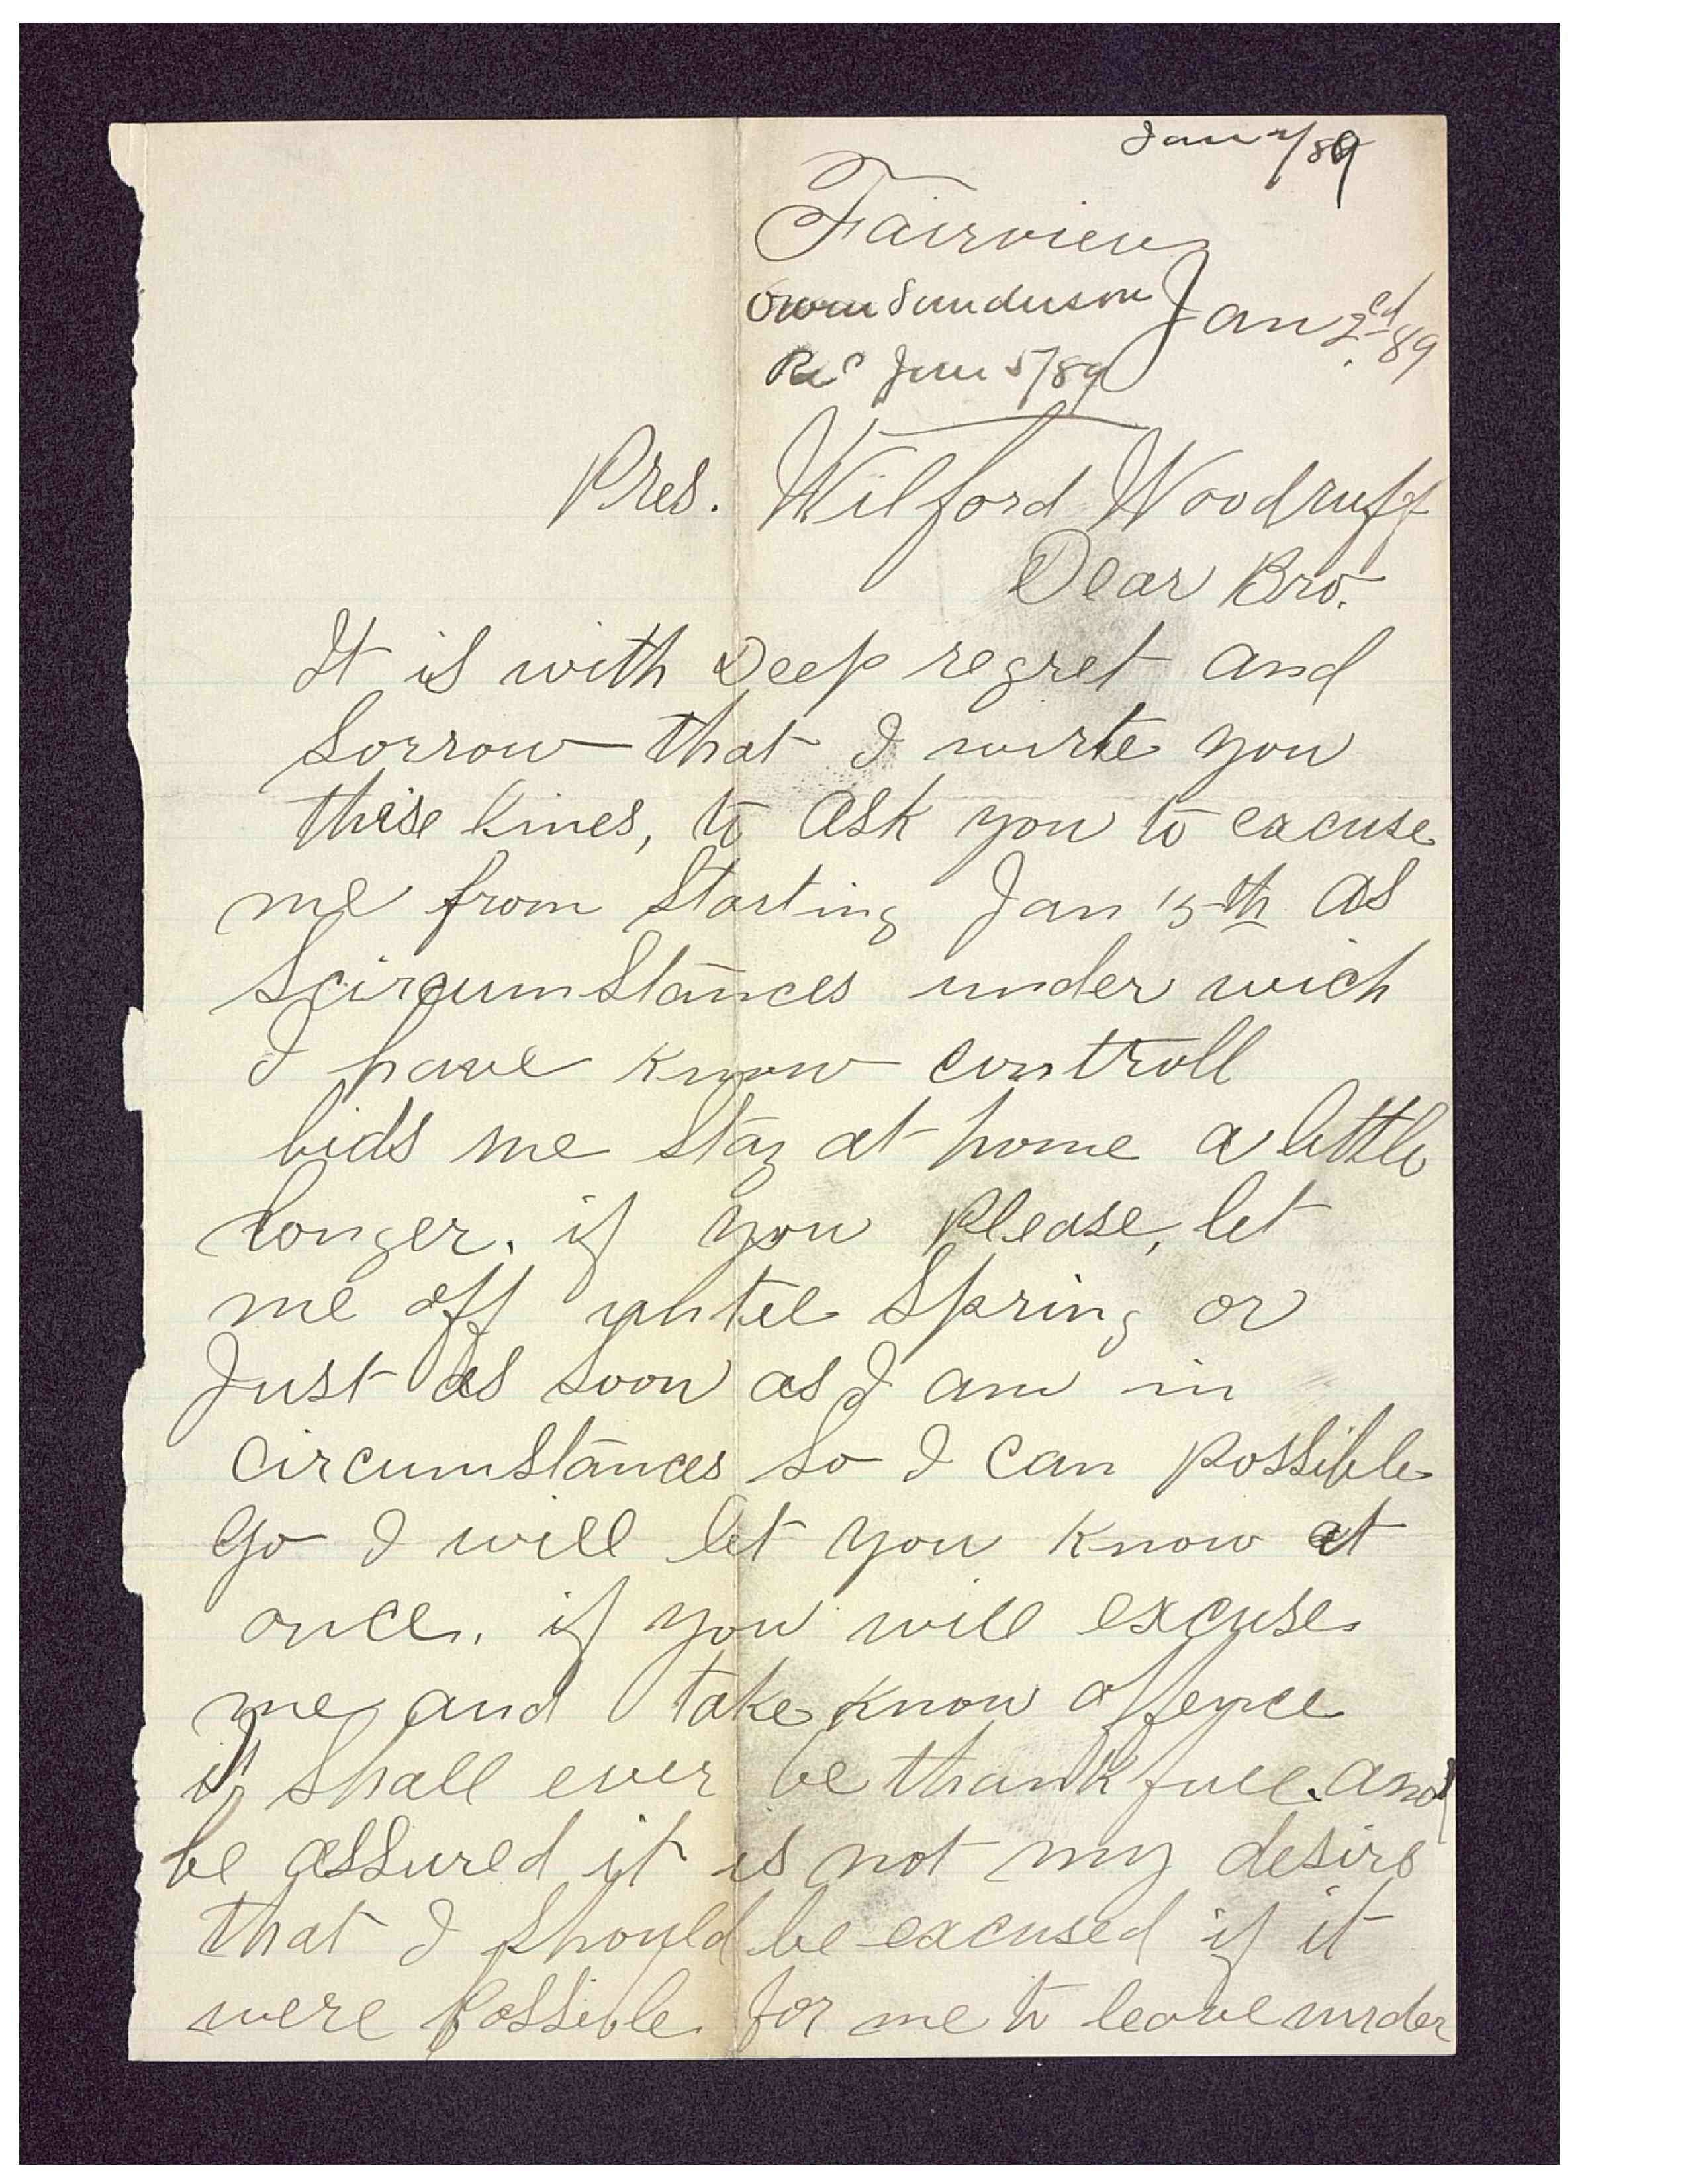 Jan 2/89
Fairview
Jan 2cd 89
Owen Sanderson
Rec Jan 5/89
Pres. Wilford Woodruff
Dear Bro.
It is with Deep regret and
Sorrow that I wirte you
thise lines, to ask you to excuse
me from Starting Jan 15th as
Scircumstances under wich
I have know controll
bids me stay at home a little
longer. if you Please, let
me off untel Spring or
Just as soon as I am in
circumstances so I can possible
go I will let you know at
once. if you will excuse
me and take know offence
I shall ever be thankfull. and
be assured it is not my desire
that I should be excused if it
were possible for me to leave under